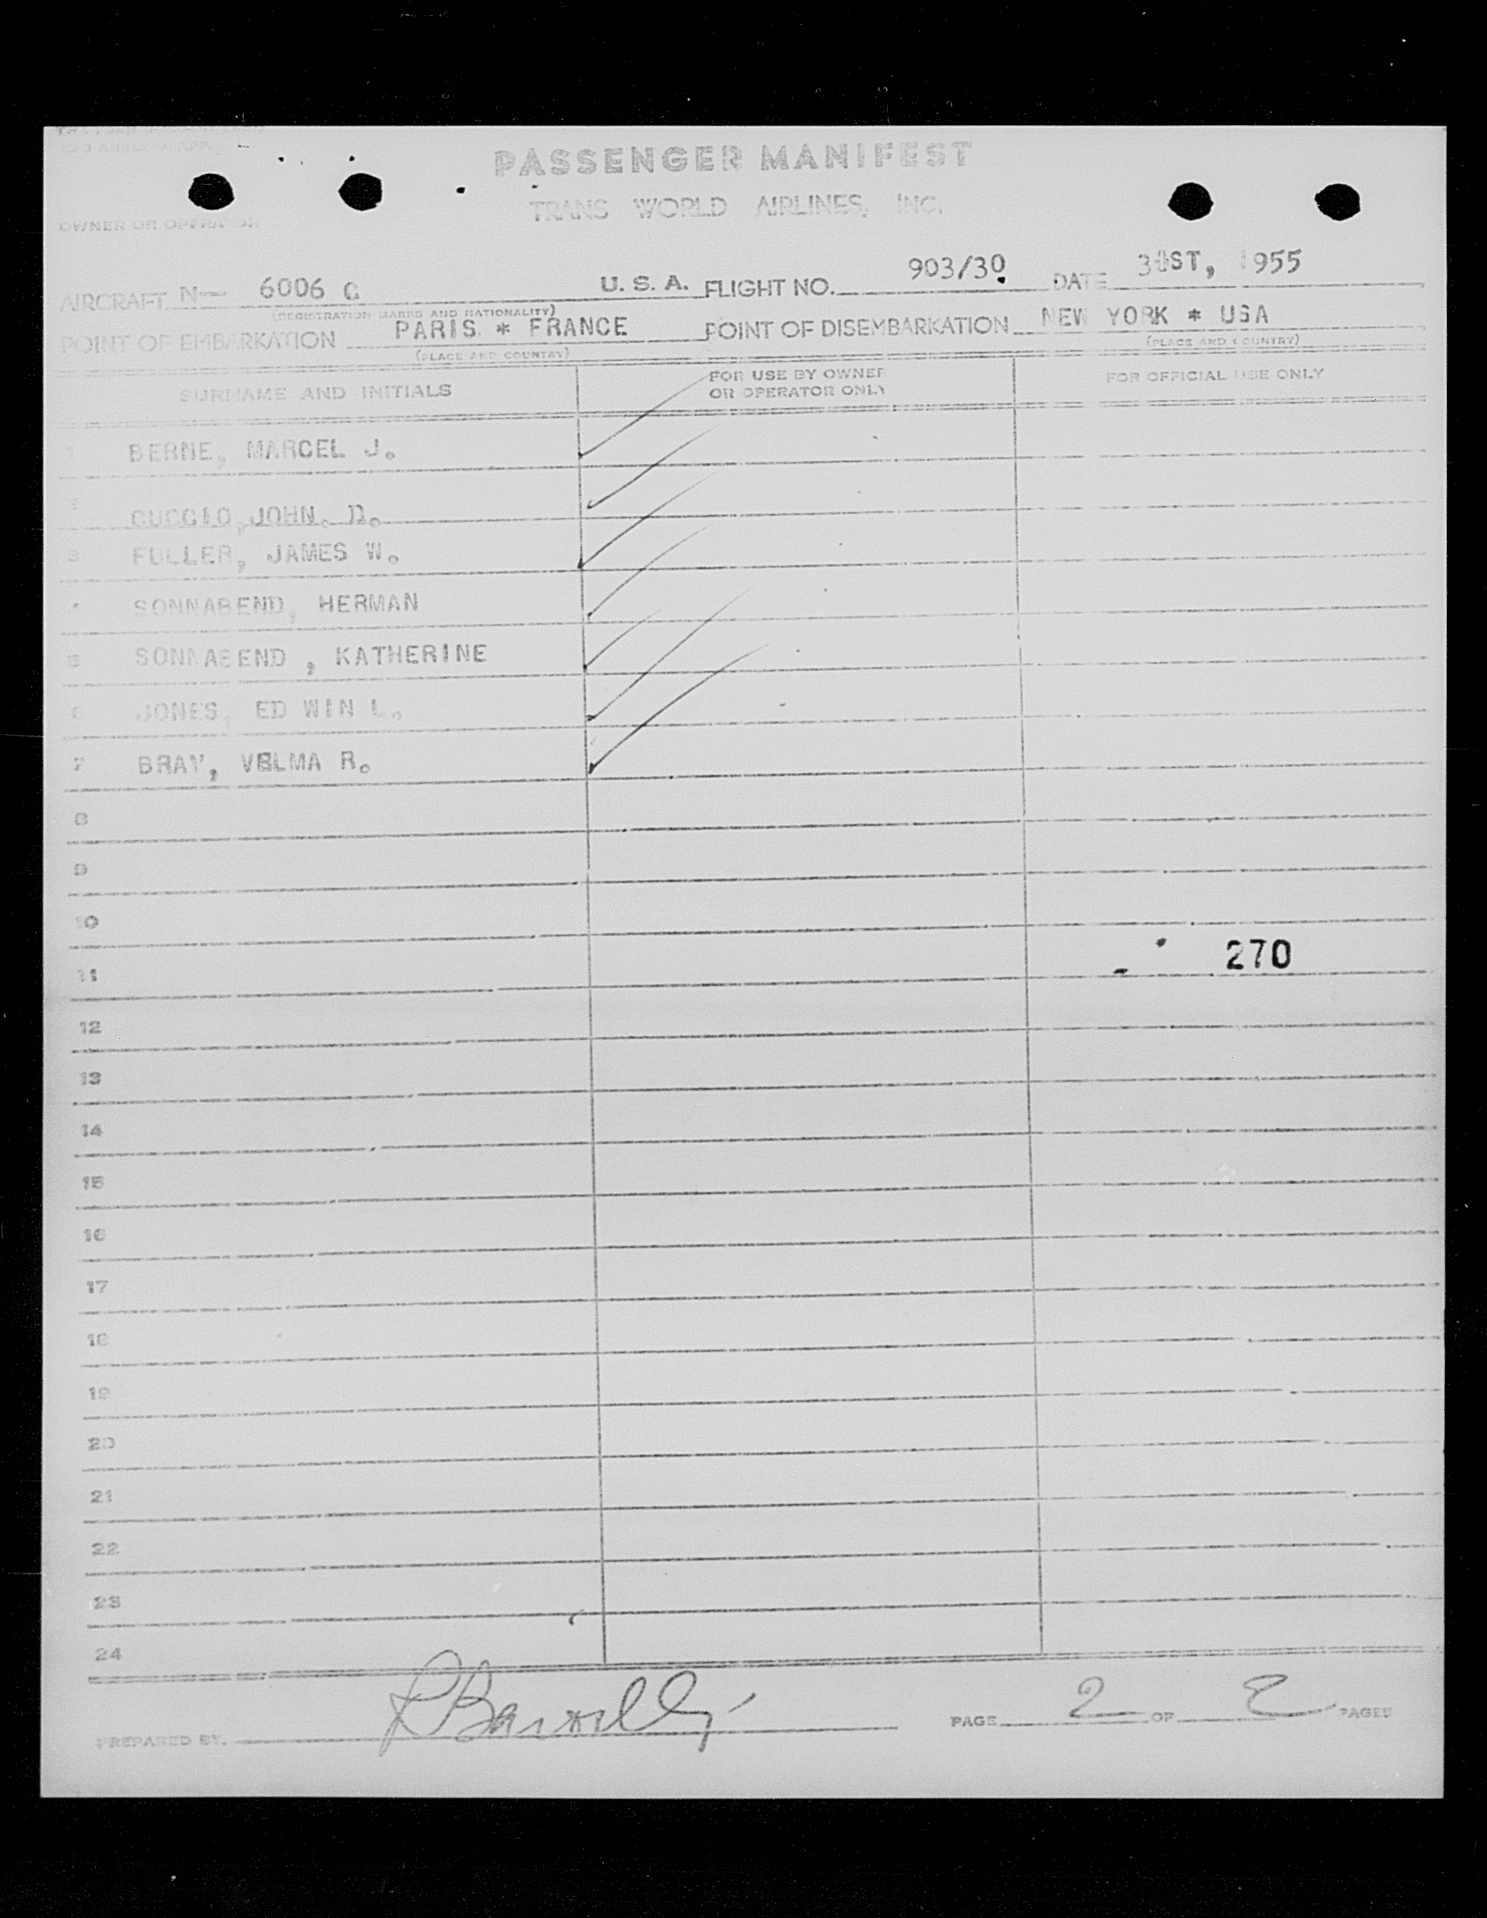 PASSENGER MANIFEST
TRANS WORLD AIRLINES, INC.
OWNER OR OPERATOR
AIRCRAFT N— 6006 C U. S. A. FLIGHT NO. 903/30 DATE 31ST, 1955
(REGISTRATION MARKS AND NATIONALITY)
POINT OF EMBARKATION PARIS * FRANCE POINT OF DISEMBARKATION NEW YORK * USA
(PLACE AND COUNTRY) (PLACE AND COUNTRY)
SURNAME AND INITIALS FOR USE BY OWNER OR OPERATOR ONLY FOR OFFICIAL USE ONLY
1 BERNE, MARCEL J.
2 CUCCIO, JOHN. D.
3 FULLER, JAMES W.
4 SONNABEND, HERMAN
5 SONNABEND , KATHERINE
6 JONES, ED WIN L.
7 BRAY, VELMA R.
8
9
10
11 270
12
13
14
15
16
17
18
19
20
21
22
23
24
PREPARED BY. PAGE 2 OF 2 PAGES